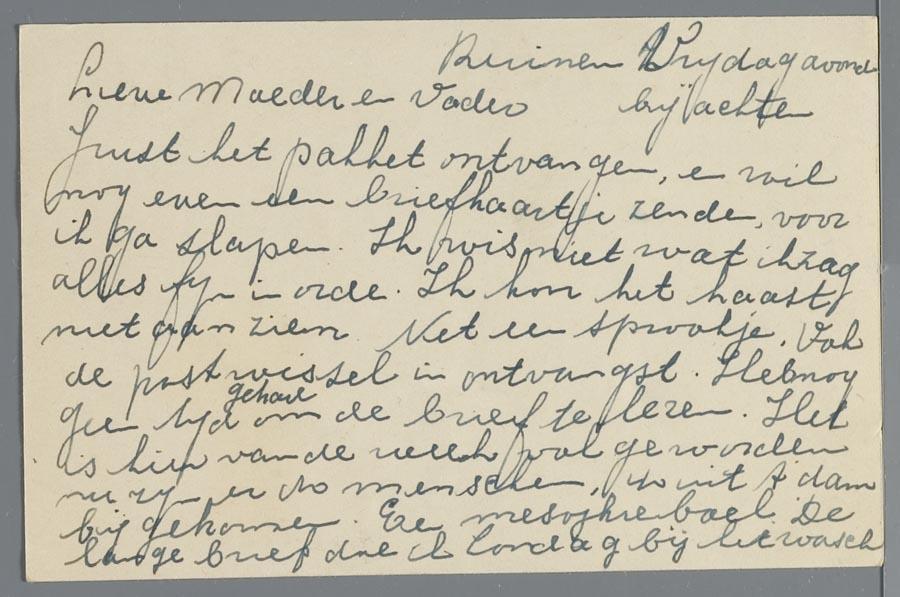 Ruinen Vrydagavond
Lieve Moeder en Vader bij achten
Juist het pakket ontvangen, en wil
nog even een briefkaartje zenden, voor
ik ga slapen. Ik wis niet wat ik zag
alles fyn in orde. Ik kon het haast
niet aanzien Net een sprookje. Ook
de postwissel in ontvangst. Heb nog
geen tyd gehad om de brief te lezen. Het
is hier van de week vol geworden
nu zyn er menschen, uit A dam
bij gekomen. Een boel. De
lange brief doe ik Zondag bij het wasch